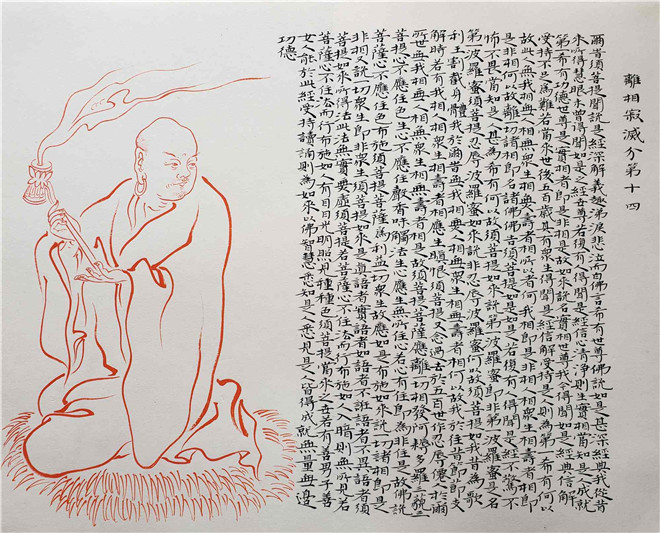 離相寂滅分第十四
爾時須菩提聞說是經深解義趣涕淚悲泣而白佛言希有世尊佛說如是甚深經典我從昔
來所得慧眼未曾得聞如是之經世尊若復有人得聞是經信心清淨則生實相當知是人成就
第一希有功德世尊是實相者即是非相是故如來說名實相世尊我今得聞如是經典信解
受持不足為難若當來世後五百歲其有衆生得聞是經信解受持是人則為第一希有何以
故此人無我相無人相無衆生相無壽者相所以者何我相即是非相人相衆生相壽者相即
是非相何以故離一切諸相即名諸佛佛告須菩提如是如是若復有人得聞是經不驚不
怖不畏當知是人甚為希有何以故須菩提如來說第一波羅蜜即非第一波羅蜜是名
第一波羅蜜須菩提忍辱波羅蜜如來說非忍辱波羅蜜何以故須菩提如我昔為歌
利王割截身體我於爾時無我相無人相無衆生相無壽者相何以故我於往昔節節支
解時若有我相人相衆生相壽者相應生瞋恨須菩提又念過去於五百世作忍辱仙人於爾
所世無我相無人相無衆生相無壽者相是故須菩提菩薩應離一切相發阿耨多羅三藐三
菩提心不應住色生心不應住聲香味觸法生心應生無所住心若心有住即為非住是故佛說
菩薩心不應住色布施須菩提菩薩為利益一切衆生故應如是布施如來說一切諸相即是
非相又說一切衆生即非衆生須菩提如來是真語者實語者如語者不誑語者不異語者須
菩提如來所得法此法無實無虛須菩提若菩薩心住於法而行布施如人入暗則無所見若
菩薩心不住法而行布施如人有目日光明照見種種色須菩提當來之世若有善男子善
女人能於此經受持讀誦則為如來以佛智慧悉知是人悉見是人皆得成就無量無邊
功德